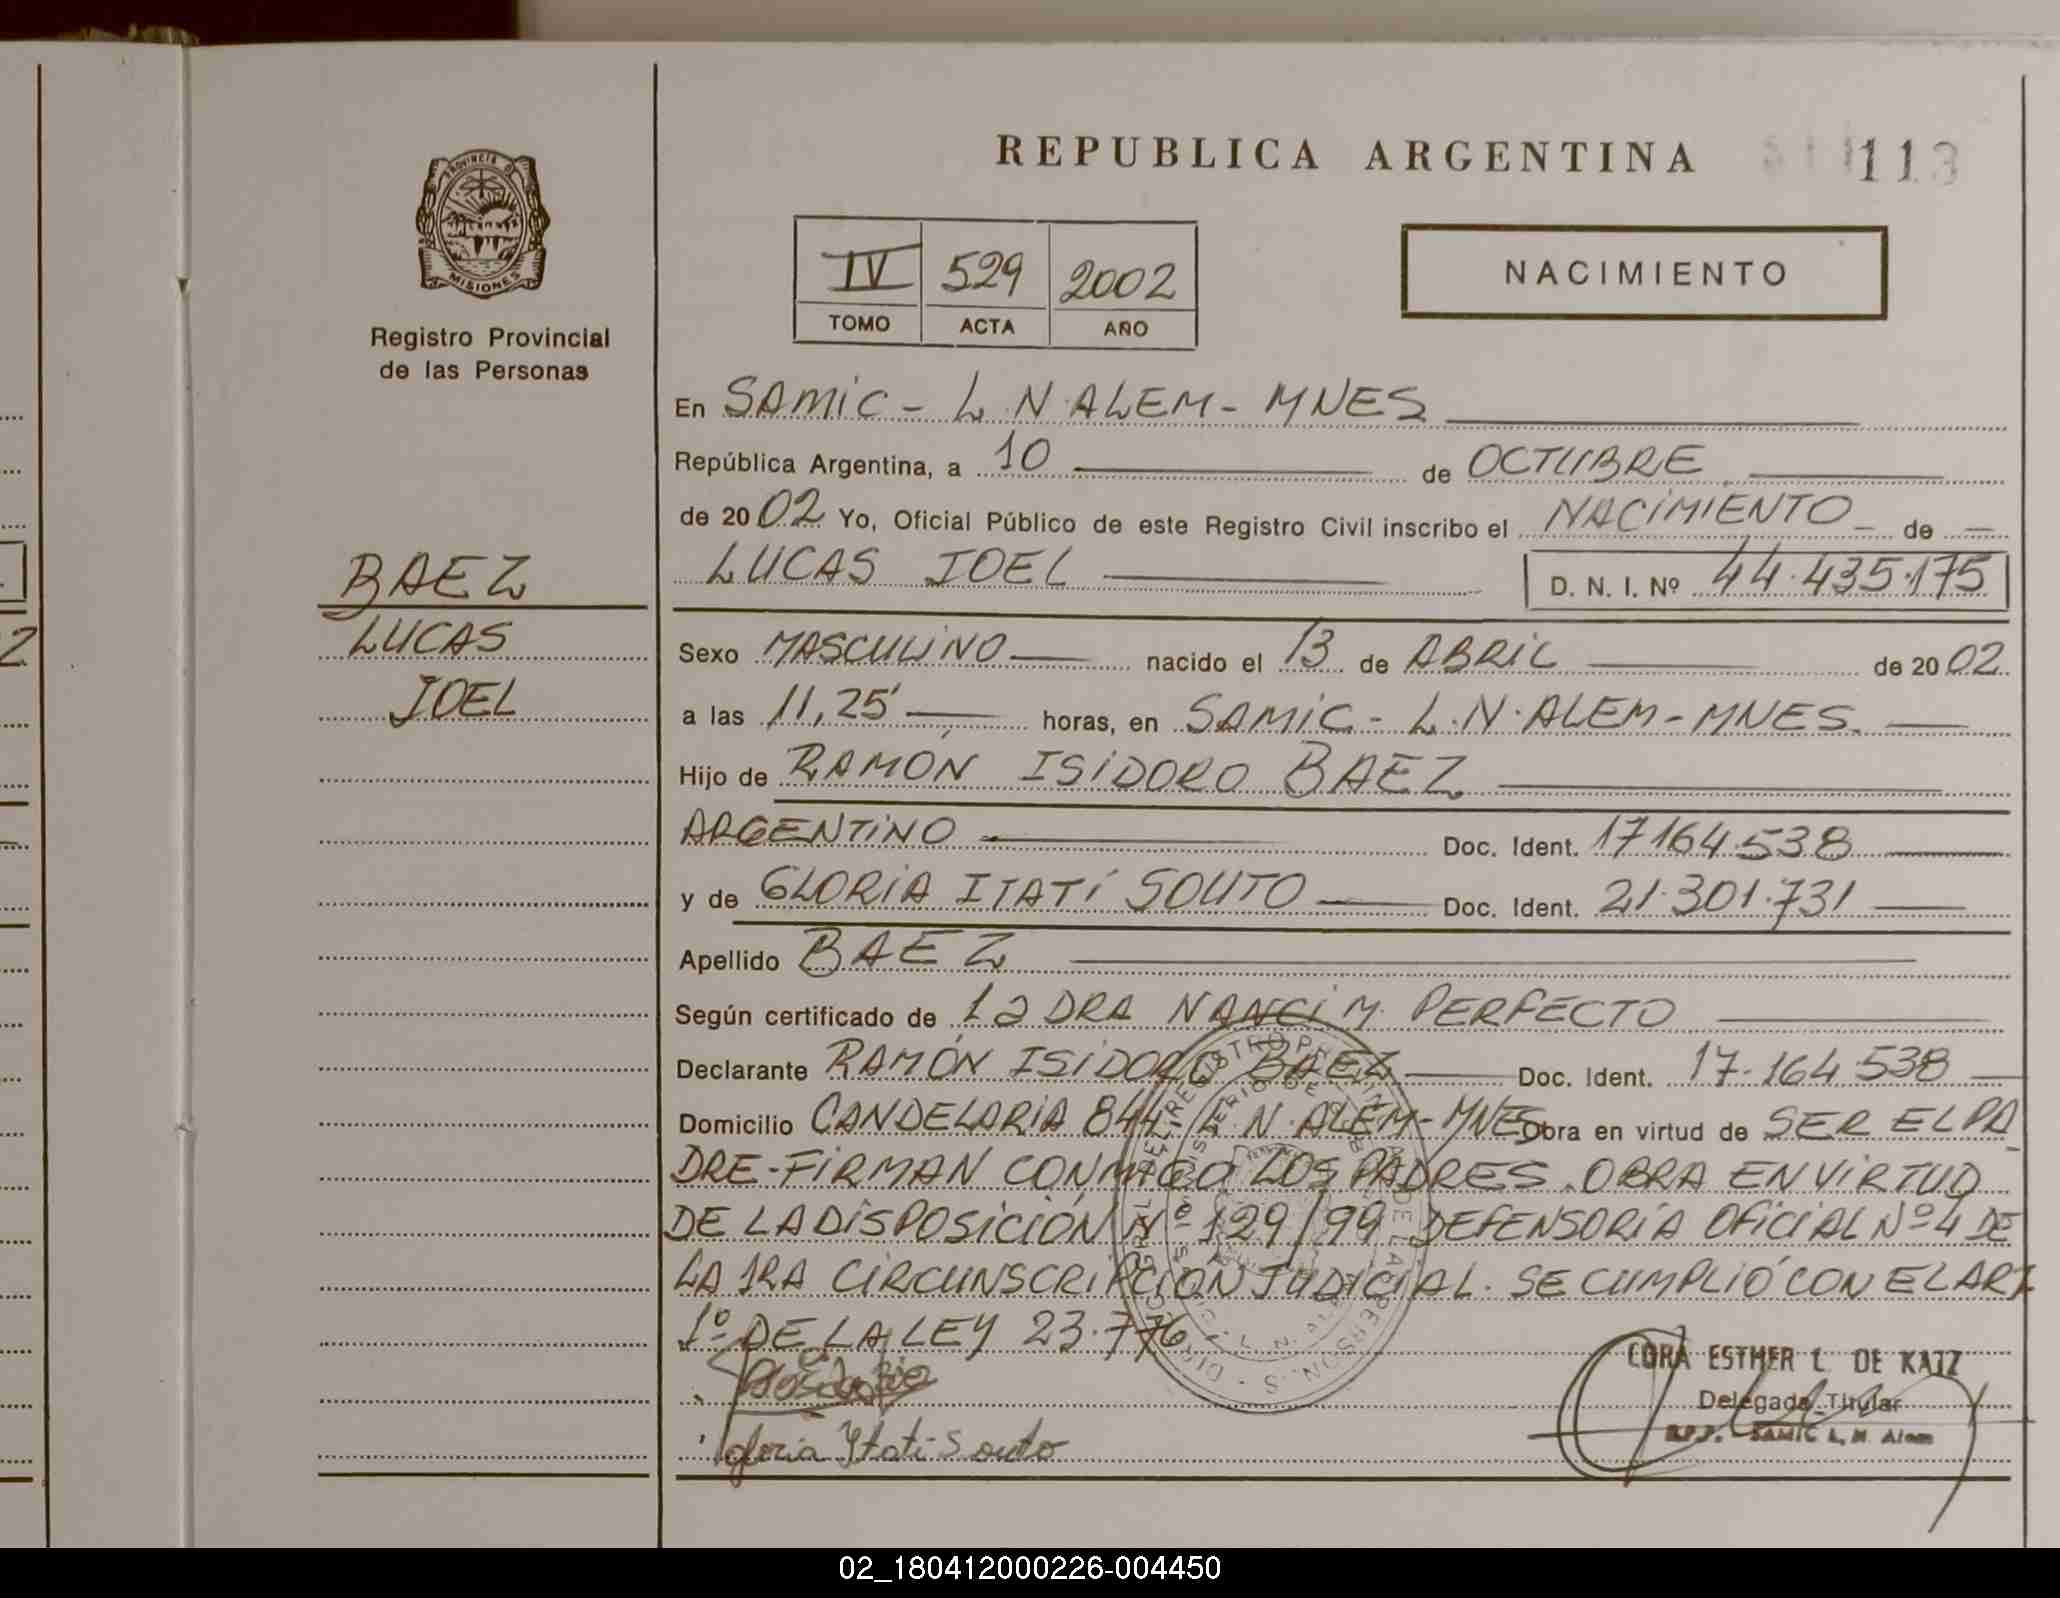 REPUBLICA ARGENTINA
113
PROVINCIA D
MISIONES
Registro Provincial
de las Personas
IV 529 2002
TOMO ACTA AÑO
NACIMIENTO
En SAMIC - L.N.ALEM - MNES
República Argentina, a 10 de OCTUBRE
de 2002 Yo, Oficial Público de este Registro Civil inscribo el NACIMIENTO de
LUCAS JOEL D. N. I. Nº 44.435.175
BAEZ
LUCAS
JOEL
Sexo MASCULINO nacido el 13 de ABRIL de 2002
a las 11,25' horas, en SAMIC - L.N.ALEM - MNES.
Hijo de RAMÓN ISIDORO BAEZ
ARGENTINO Doc. Ident. 17164.538
y de GLORIA ITATÍ SOUTO Doc. Ident. 21.301.731
Apellido BAEZ
Según certificado de la DRA NANCI M. PERFECTO
Declarante RAMÓN ISIDORO BAEZ Doc. Ident. 17.164.538
Domicilio CANDELARIA 844 L.N.ALEM-MNES Obra en virtud de SER EL PA
DRE-FIRMAN CONMIGO LOS PADRES. OBRA EN VIRTUD
DE LA DISPOSICIÓN Nº 129/99 DEFENSORÍA OFICIAL Nº 4 DE
LA 1RA CIRCUNSCRIPCIÓN JUDICIAL. SE CUMPLIÓ CON EL ART
1º DE LA LEY 23.776
Gloria Itati Souto
CORA ESTHER L. DE KATZ
Delegada Titular
R.P.P. SAMIC L. N. Alem
02_180412000226-004450